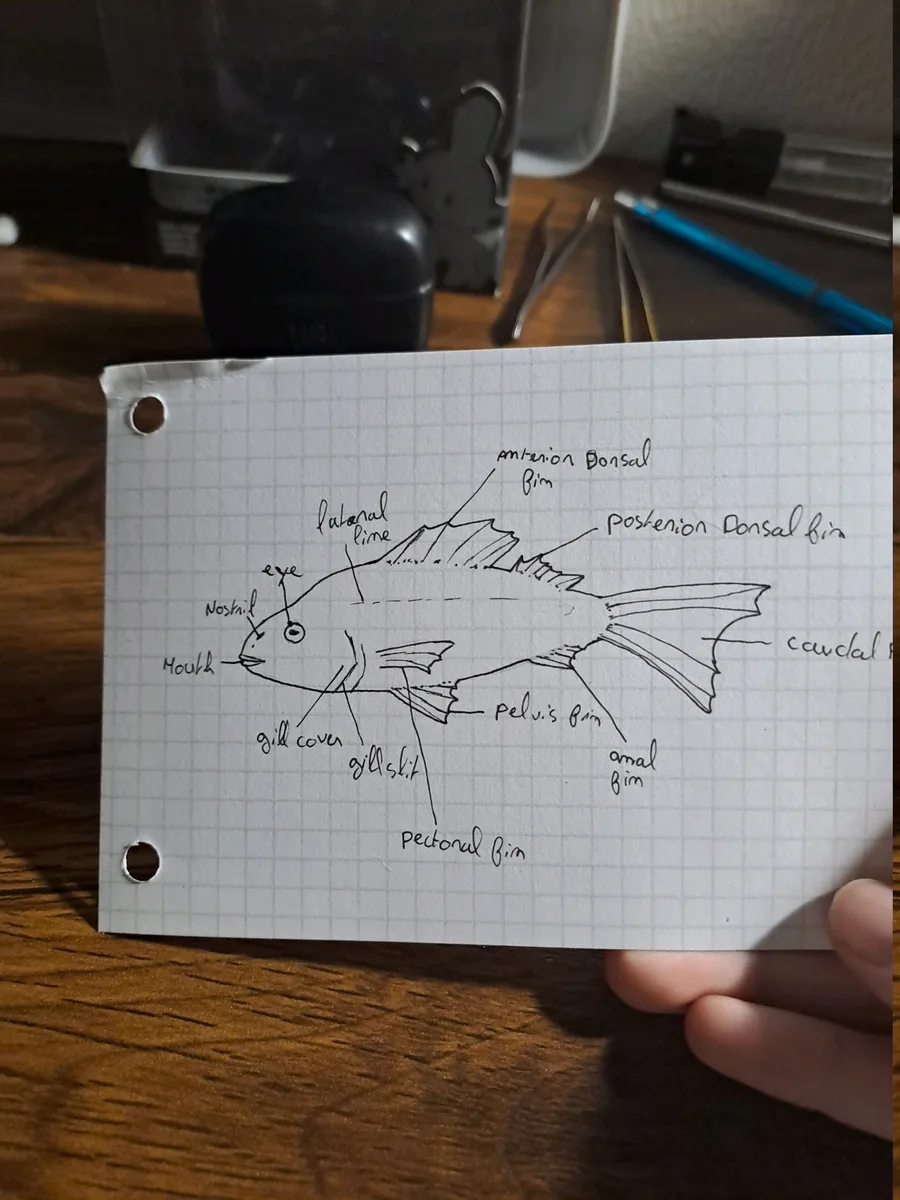 anterior Dorsal
fin
lateral
line
posterior Dorsal fin
eye
Nostril
Mouth
caudal
gill cover
pelvis fin
gill slit
anal
fin
pectoral fin